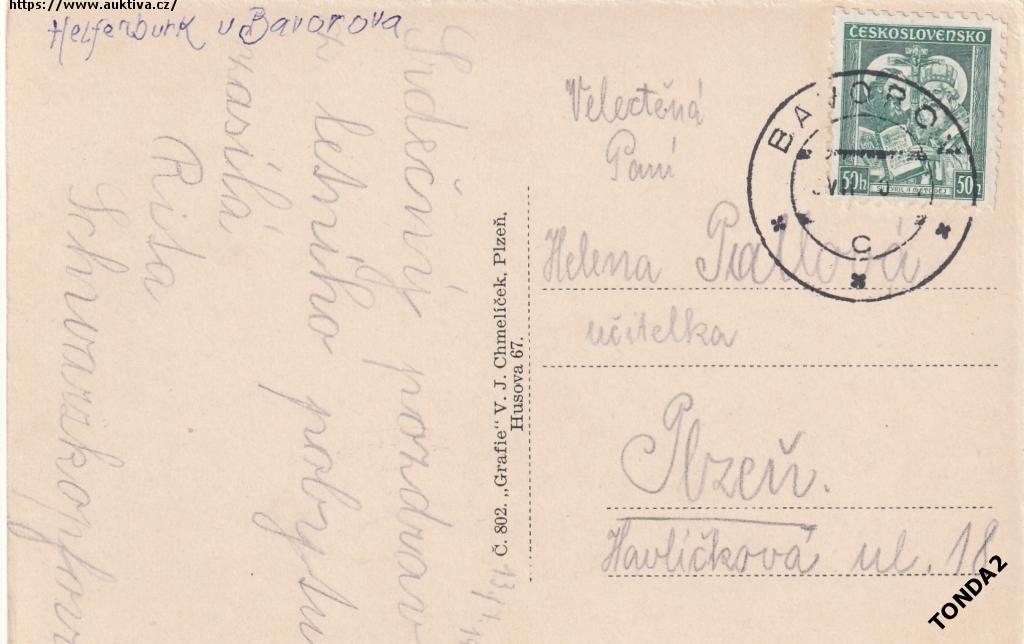 https://www.auktiva.cz/
Helfenburk u Bavorova
Srdečný pozdrav
z letního pobytu
zasílá
Rita
Č. 802. „Grafie" V. J. Chmelíček, Plzeň,
Husova 67.
ČESKOSLOVENSKO
50h 50h
BAVOROV
C
Velectěná
Paní
Helena
učitelka
Plzeň.
Havlíčková ul. 18
TONDA2